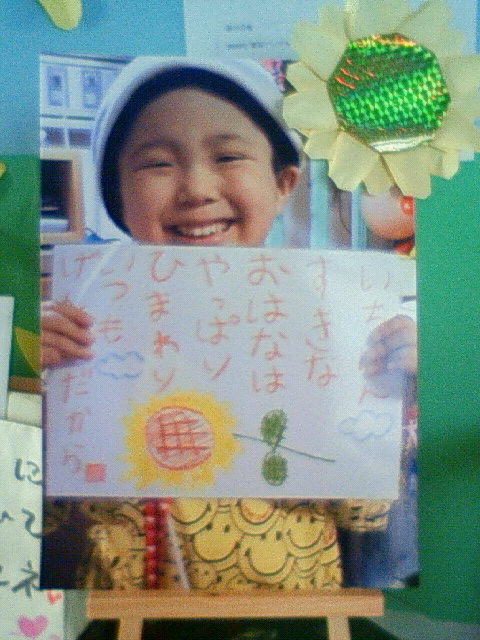 いちばん
すきな
おはなは
やっぱり
ひまわり
いつも
げんきだから